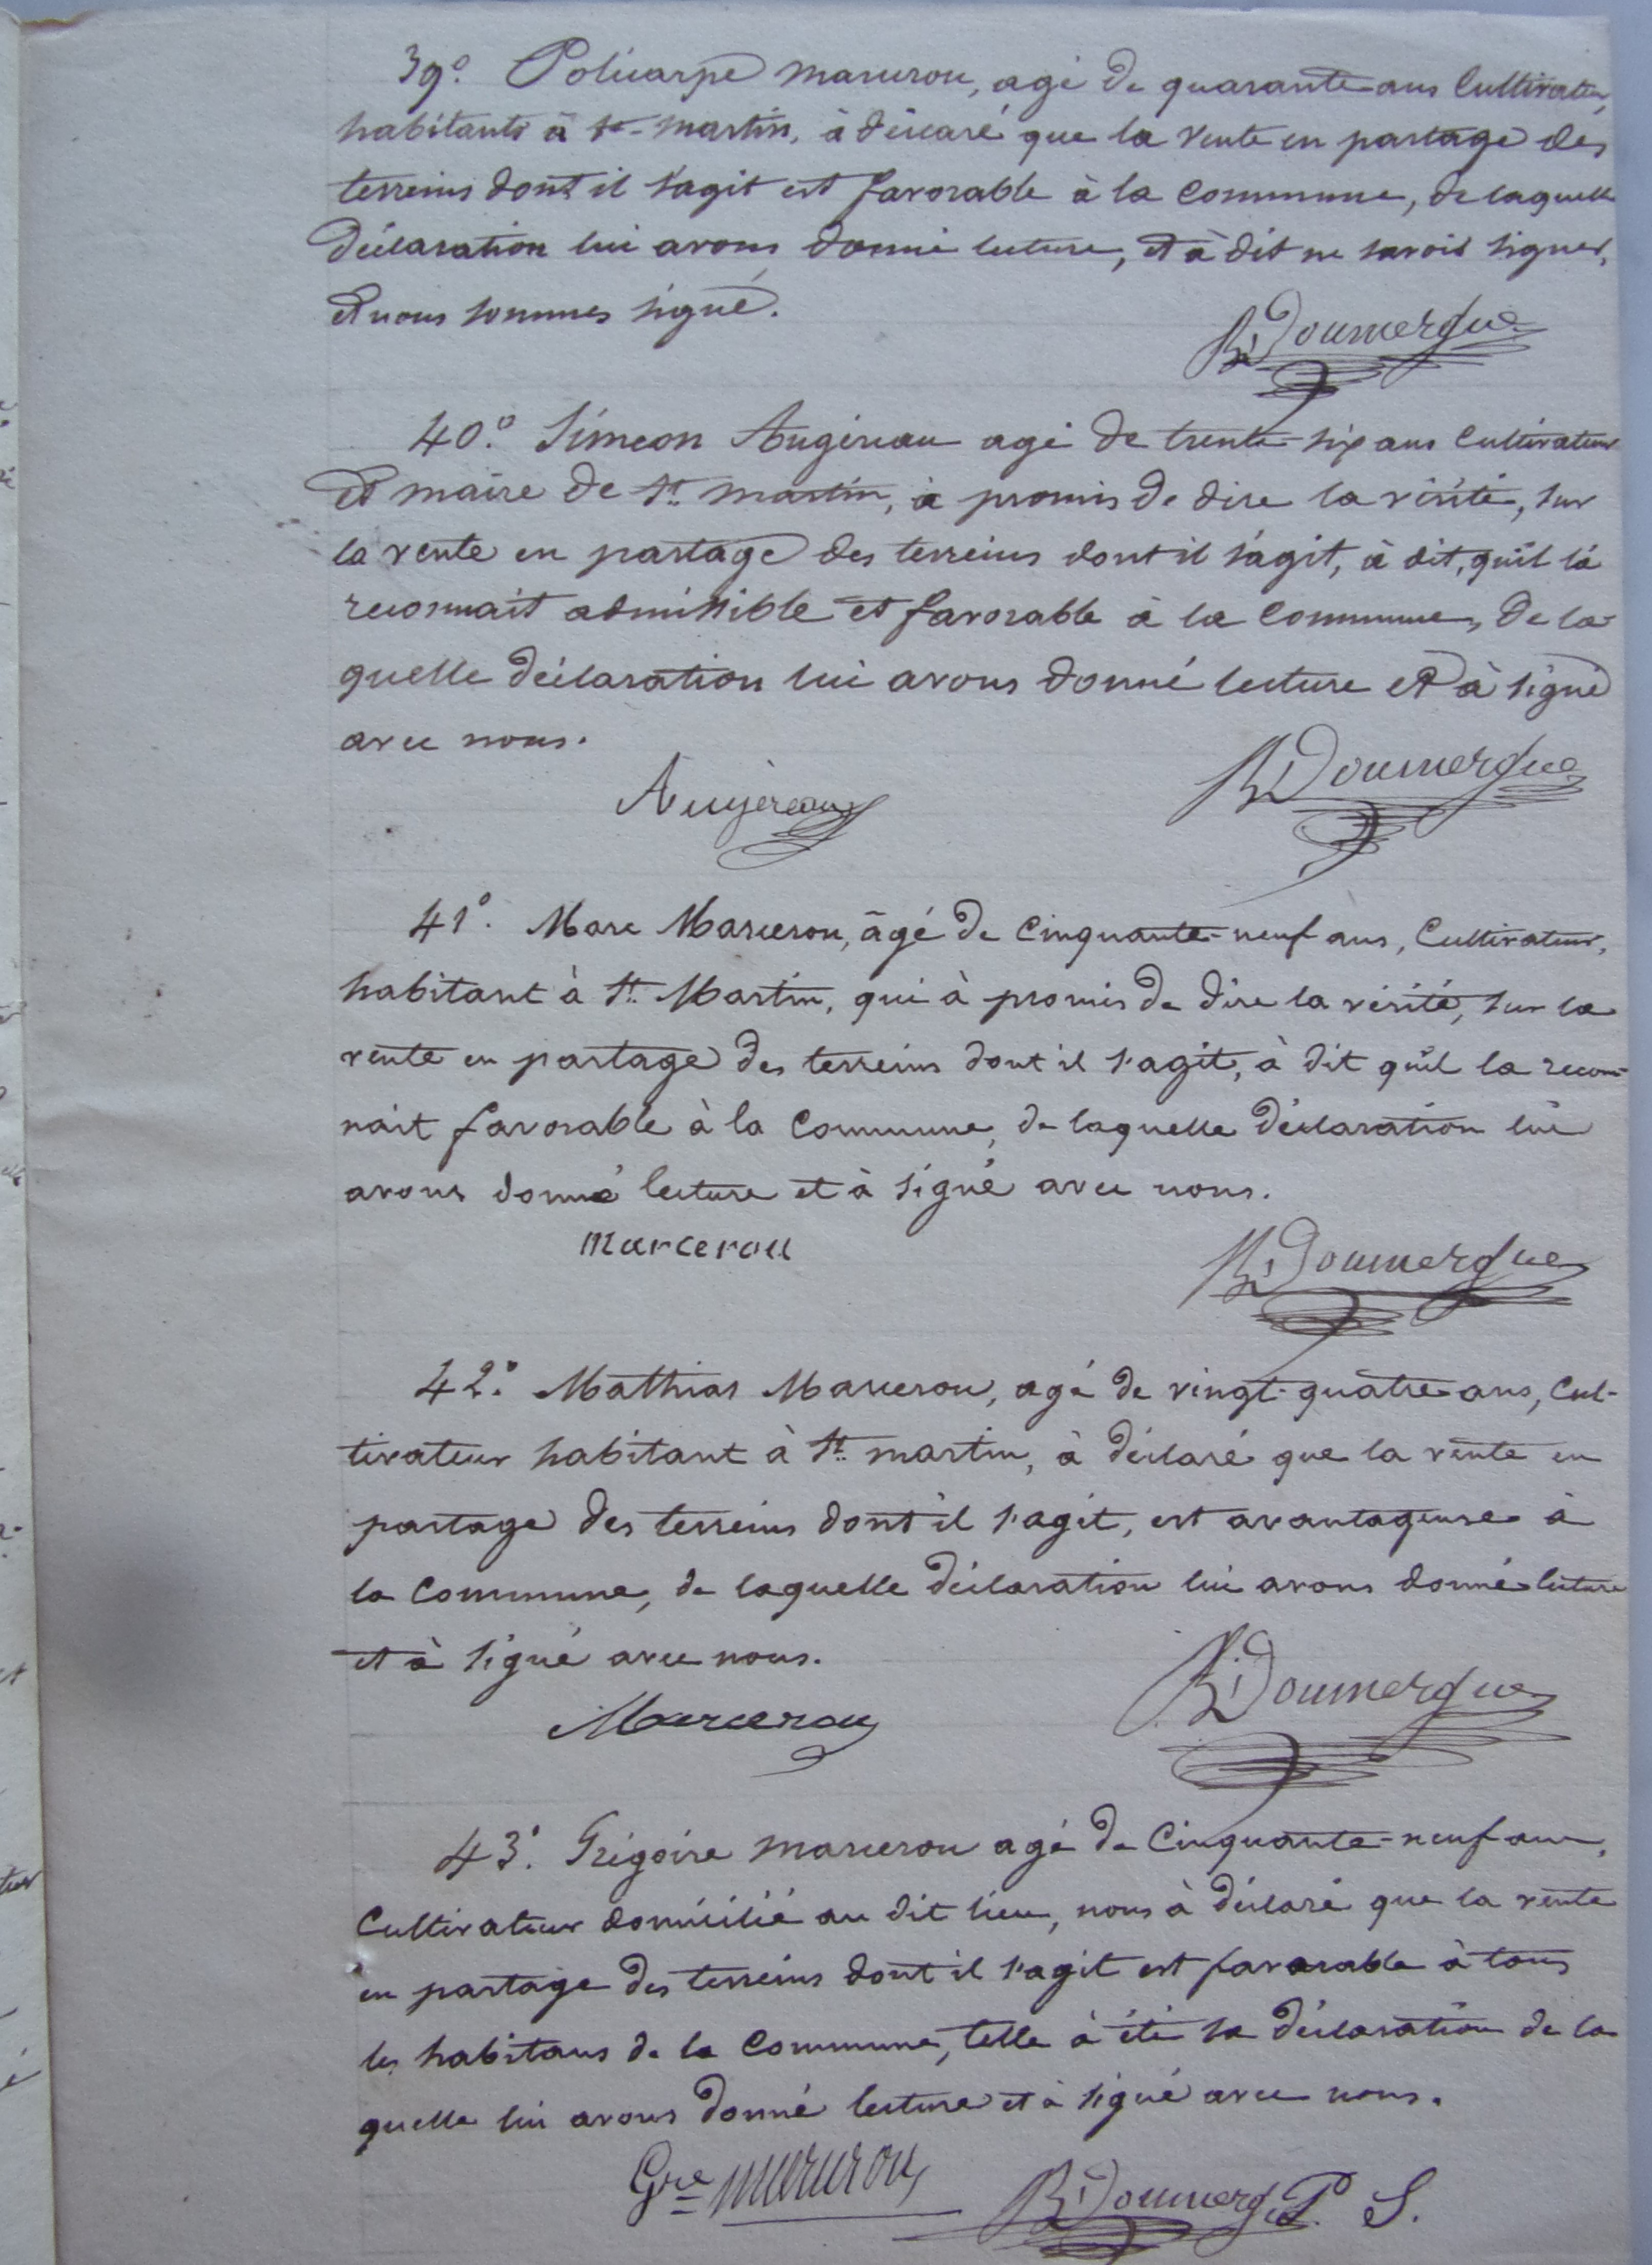 39.° Policarpe Marcerou, agé de quarante ans Cultivateur,
habitants à St-Martin, à déclaré que la vente en partage des
terreins dont il s'agit est favorable à la Commune, de laquelle
déclaration lui avons donné lecture, et à dit ne savoir signer,
et nous sommes signé.
R. Doumergue
40.° Siméon Augereau agé de trente-six ans Cultivateur
et maire de St. Martin, à promis de dire la vérité, sur
la vente en partage des terreins dont il s'agit, à dit, qu'il la
reconnait admissible et favorable à la Commune, de la-
quelle déclaration lui avons donné lecture et à signé
avec nous.
Augereau R. Doumergue
41°. Marc Marcerou, âgé de Cinquante-neuf ans, Cultivateur,
habitant à St. Martin, qui à promis de dire la vérité, sur la
vente en partage des terreins dont il s'agit, à dit qu'il la recon-
nait favorable à la Commune, de laquelle déclaration lui
avons donné lecture et à signé avec nous.
Marcerou R. Doumergue
42.° Mathias Marcerou, agé de vingt-quatre ans, Cul-
tivateur habitant à St. Martin, à déclaré que la vente en
partage des terreins dont il s'agit, est avantageuse à
la Commune, de laquelle déclaration lui avons donné lecture
et à signé avec nous.
Marcerou R. Doumergue
43.° Grégoire Marcerou agé de Cinquante-neuf ans,
Cultivateur domicilié au dit lieu, nous à déclaré que la vente
en partage des terreins dont il s'agit est favorable à tous
les habitans de la Commune, telle à été sa déclaration de la
quelle lui avons donné lecture et à signé avec nous.
Gre Marcerou R. Doumergue P. S.